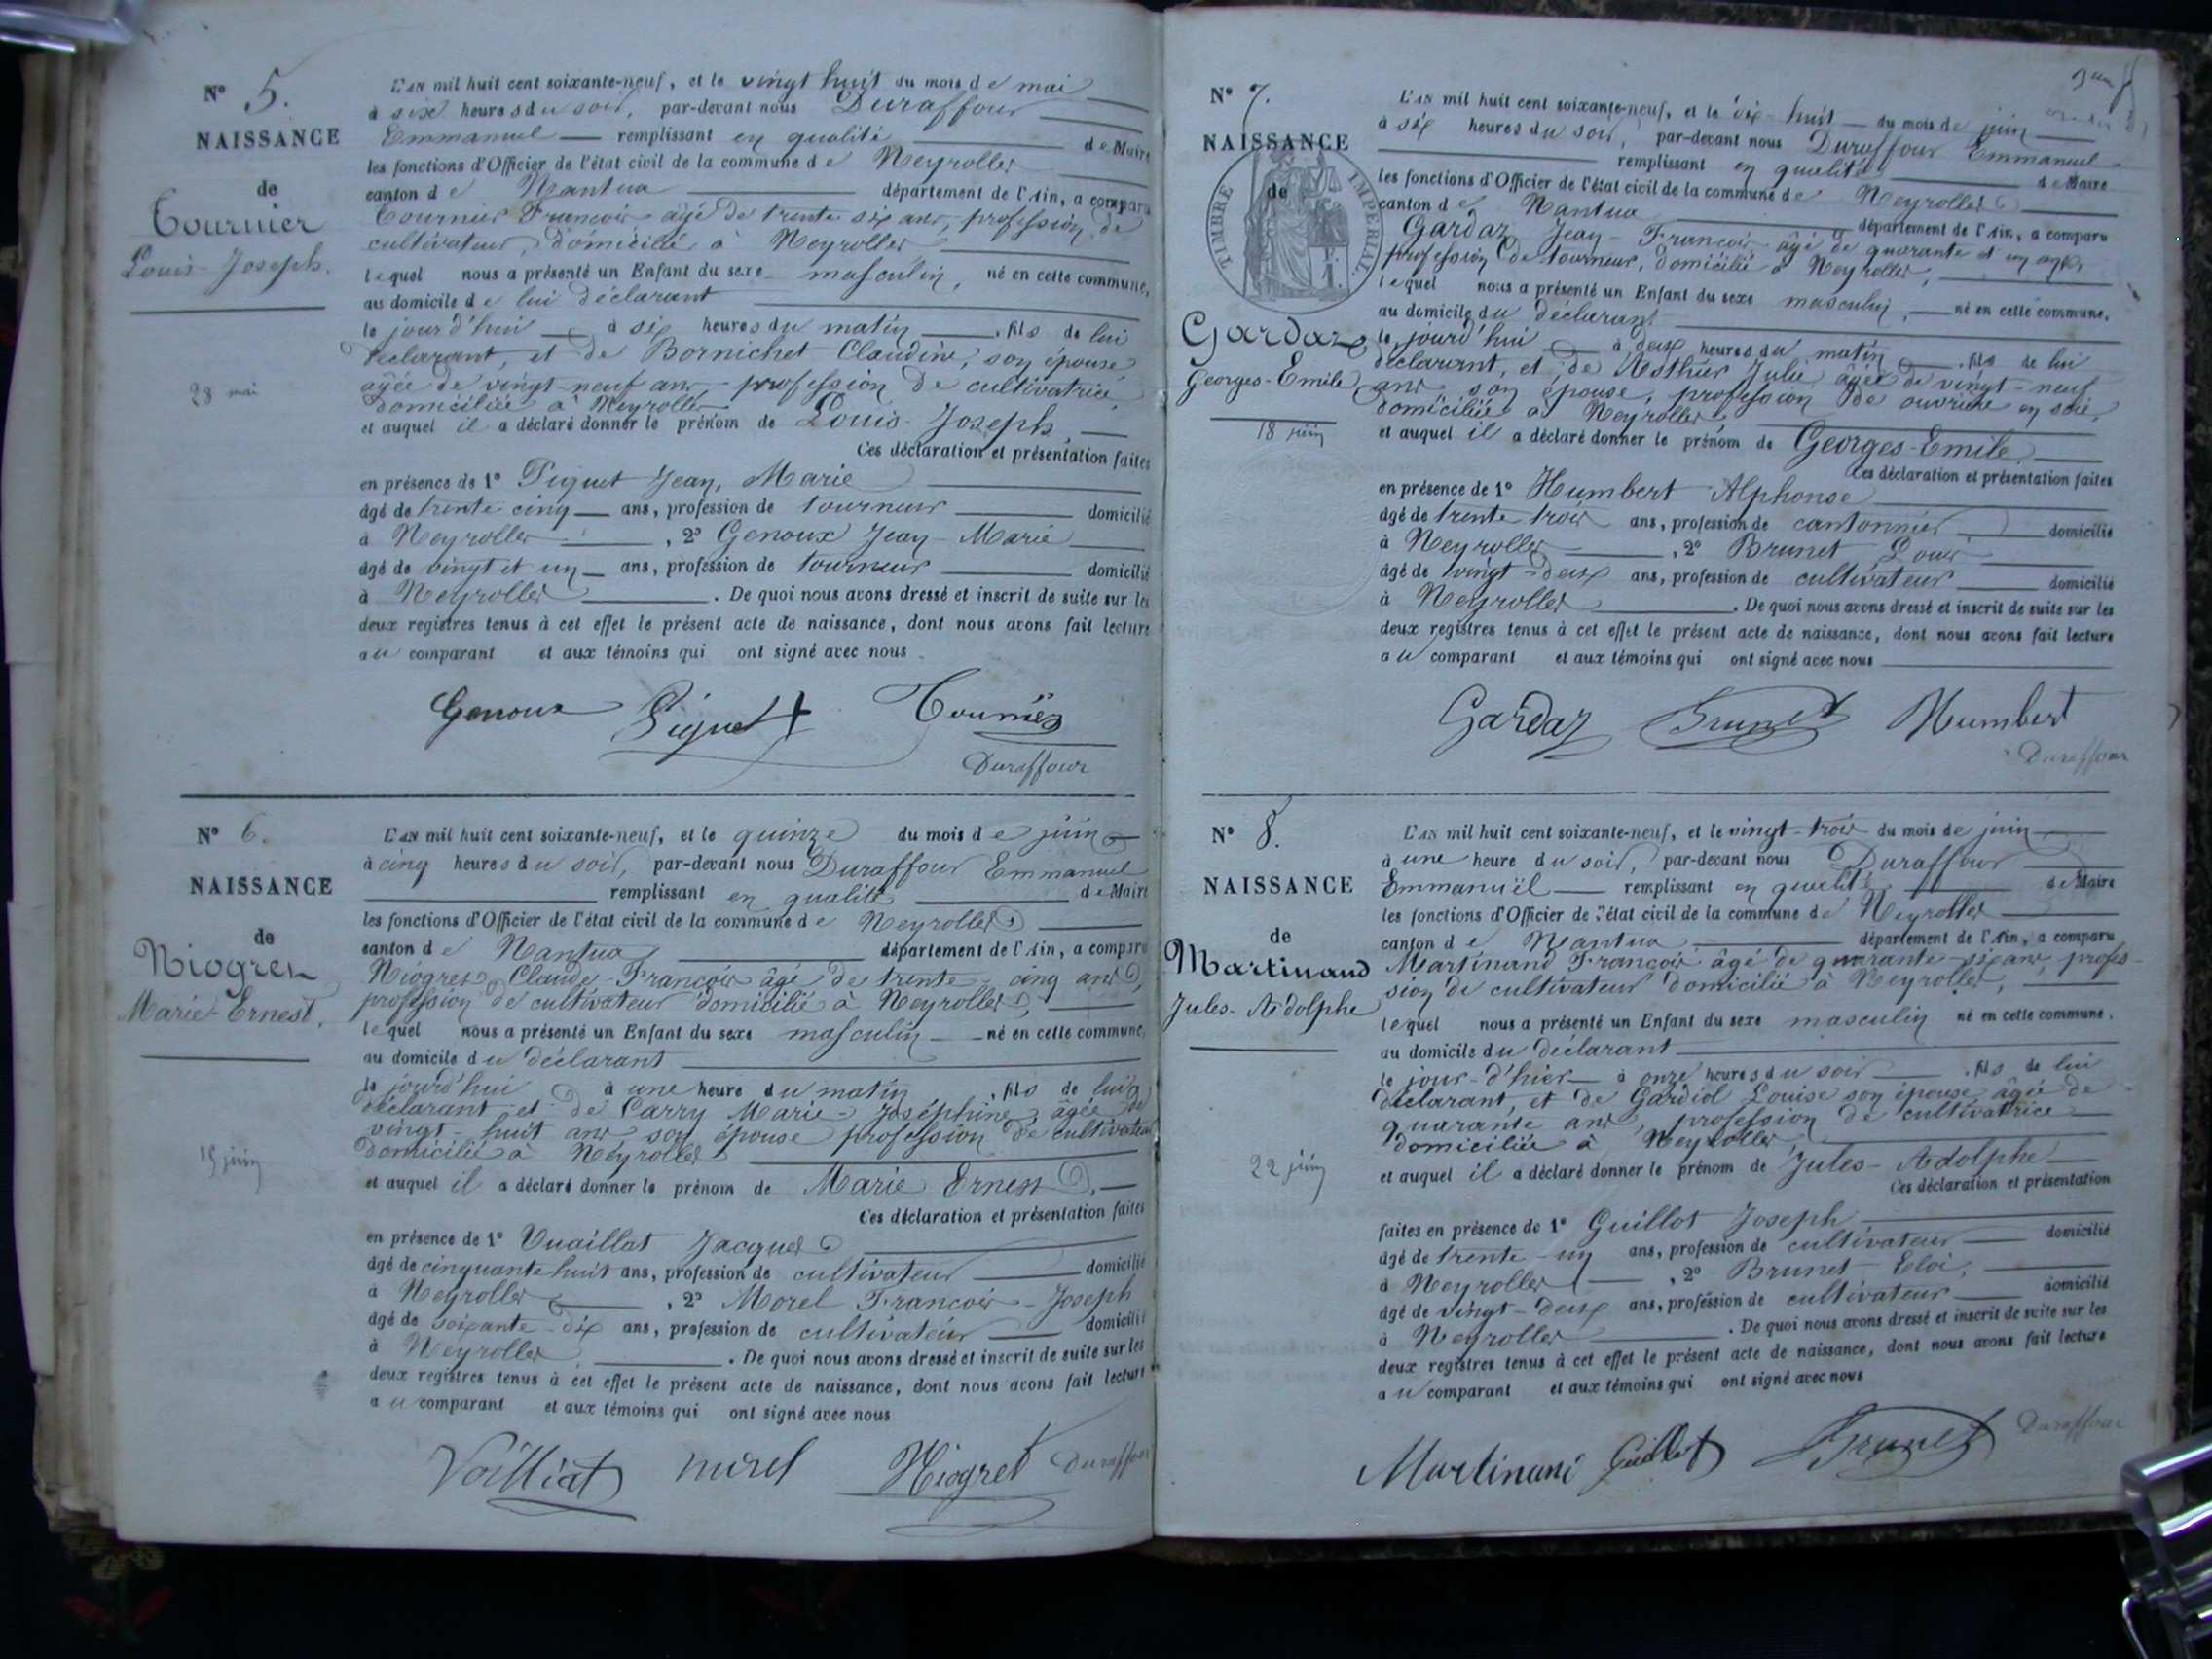 N° 5.
NAISSANCE
de
Tournier
Louis-Joseph.
28 mai
L'AN mil huit cent soixante-neuf, et le vingt huit du mois de mai
à six heures du soir, par-devant nous Duraffour
Emmanuel — remplissant en qualité de Maire
les fonctions d'Officier de l'état civil de la commune de Neyrolles
canton de Nantua département de l'Ain, a comparu
Tournier François âgé de trente six ans, profession de
cultivateur, domicilié à Neyrolles
lequel nous a présenté un Enfant du sexe masculin, né en cette commune,
au domicile de lui déclarant
le jourd'hui à six heures du matin, fils de lui
déclarant, et de Bornichet Claudine, son épouse
agée de vingt-neuf ans, profession de cultivatrice,
domiciliée à Neyrolles
et auquel il a déclaré donner le prénom de Louis-Joseph,
Ces déclaration et présentation faites
en présence de 1° Piquet Jean, Marie
âgé de trente cinq ans, profession de tourneur domicilié
à Neyrolles, 2° Genoux Jean-Marie
âgé de vingt et un ans, profession de tourneur domicilié
à Neyrolles. De quoi nous avons dressé et inscrit de suite sur les
deux registres tenus à cet effet le présent acte de naissance, dont nous avons fait lecture
au comparant et aux témoins qui ont signé avec nous
Genoux Piquet Tournier
Duraffour
N° 6.
NAISSANCE
de
Niogret
Marie-Ernest.
15 juin
L'AN mil huit cent soixante-neuf, et le quinze du mois de juin
à cinq heures du soir, par-devant nous Duraffour Emmanuel
remplissant en qualité de Maire
les fonctions d'Officier de l'état civil de la commune de Neyrolles
canton de Nantua département de l'Ain, a comparu
Niogret Claude-François âgé de trente-cinq ans,
profession de cultivateur domicilié à Neyrolles,
lequel nous a présenté un Enfant du sexe masculin né en cette commune,
au domicile du déclarant
le jourd'hui à une heure du matin, fils de lui
déclarant et de Carry Marie-Joséphine, âgée de
vingt-huit ans, son épouse profession de cultivateur
domicilié à Neyrolles
et auquel il a déclaré donner le prénom de Marie Ernest.
Ces déclaration et présentation faites
en présence de 1° Vuaillat Jacques
âgé de cinquante huit ans, profession de cultivateur domicilié
à Neyrolles, 2° Morel François-Joseph
âgé de soixante-dix ans, profession de cultivateur domicilié
à Neyrolles. De quoi nous avons dressé et inscrit de suite sur les
deux registres tenus à cet effet le présent acte de naissance, dont nous avons fait lecture
au comparant et aux témoins qui ont signé avec nous
Voilliat morel Niogret Duraffour
N° 7.
NAISSANCE
de
TIMBRE IMPERIAL
Gardaz
Georges-Emile
18 juin
L'AN mil huit cent soixante-neuf, et le dix-huit du mois de juin
à six heures du soir, par-devant nous Duraffour Emmanuel
remplissant en qualité de Maire
les fonctions d'Officier de l'état civil de la commune de Neyrolles
canton de Nantua département de l'Ain, a comparu
Gardaz Jean-François âgé de quarante et un ans,
profession de tourneur, domicilié à Neyrolles,
lequel nous a présenté un Enfant du sexe masculin, né en cette commune,
au domicile du déclarant
le jourd'hui à deux heures du matin, fils de lui
déclarant, et de Julie âgée de vingt-neuf
ans son épouse, profession de ouvrière en soie,
domiciliée à Neyrolles
et auquel il a déclaré donner le prénom de Georges-Emile
Ces déclaration et présentation faites
en présence de 1° Humbert Alphonse
âgé de trente trois ans, profession de cantonnier domicilié
à Neyrolles, 2° Brunet Louis
âgé de vingt-deux ans, profession de cultivateur domicilié
à Neyrolles. De quoi nous avons dressé et inscrit de suite sur les
deux registres tenus à cet effet le présent acte de naissance, dont nous avons fait lecture
au comparant et aux témoins qui ont signé avec nous
Gardaz Brunet Humbert
Duraffour
N° 8.
NAISSANCE
de
Martinand
Jules-Adolphe
22 juin
L'AN mil huit cent soixante-neuf, et le vingt-trois du mois de juin
à une heure du soir, par-devant nous Duraffour
Emmanuël — remplissant en qualité de Maire
les fonctions d'Officier de l'état civil de la commune de Neyrolles
canton de Nantua département de l'Ain, a comparu
Martinand François âgé de quarante-six ans, profes-
sion de cultivateur domicilié à Neyrolles,
lequel nous a présenté un Enfant du sexe masculin né en cette commune,
au domicile du déclarant
le jour-d'hier à onze heures du soir, fils de lui
déclarant, et de Gardiol Louise son épouse âgée de
quarante ans, profession de cultivatrice
domiciliée à Neyrolles
et auquel il a déclaré donner le prénom de Jules-Adolphe
Ces déclaration et présentation
faites en présence de 1° Guillot Joseph
âgé de trente-un ans, profession de cultivateur domicilié
à Neyrolles, 2° Brunet Eloi,
âgé de vingt-deux ans, profession de cultivateur domicilié
à Neyrolles. De quoi nous avons dressé et inscrit de suite sur les
deux registres tenus à cet effet le présent acte de naissance, dont nous avons fait lecture
au comparant et aux témoins qui ont signé avec nous
Martinand Guillot Brunet Duraffour